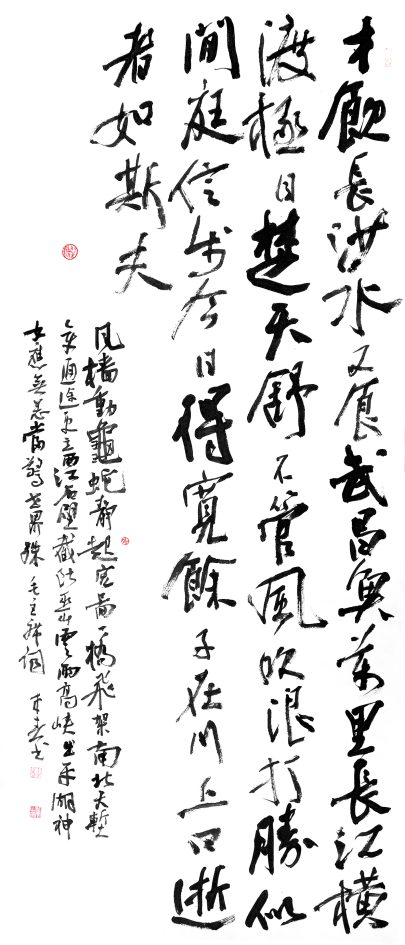 才飲長沙水又食武昌魚萬里長江橫
渡極目楚天舒不管風吹浪打勝似
閒庭信步今日得寬餘子在川上曰逝
者如斯夫
風檣動龜蛇靜起宏圖一橋飛架南北天塹
變通途更立西江石壁截斷巫山雲雨高峽出平湖神
女應無恙當驚世界殊毛主席詞